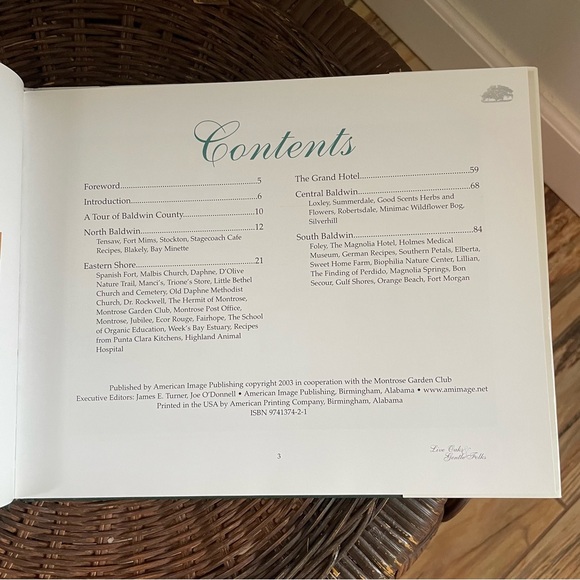 Contents
Foreword..................................................5
Introduction..............................................6
A Tour of Baldwin County...........................10
North Baldwin...........................................12
Tensaw, Fort Mims, Stockton, Stagecoach Cafe
Recipes, Blakely, Bay Minette
Eastern Shore............................................21
Spanish Fort, Malbis Church, Daphne, D'Olive
Nature Trail, Manci's, Trione's Store, Little Bethel
Church and Cemetery, Old Daphne Methodist
Church, Dr. Rockwell, The Hermit of Montrose,
Montrose Garden Club, Montrose Post Office,
Montrose, Jubilee, Ecor Rouge, Fairhope, The School
of Organic Education, Week's Bay Estuary, Recipes
from Punta Clara Kitchens, Highland Animal
Hospital
The Grand Hotel.........................................59
Central Baldwin.........................................68
Loxley, Summerdale, Good Scents Herbs and
Flowers, Robertsdale, Minimac Wildflower Bog,
Silverhill
South Baldwin...........................................84
Foley, The Magnolia Hotel, Holmes Medical
Museum, German Recipes, Southern Petals, Elberta,
Sweet Home Farm, Biophilia Nature Center, Lillian,
The Finding of Perdido, Magnolia Springs, Bon
Secour, Gulf Shores, Orange Beach, Fort Morgan
Published by American Image Publishing copyright 2003 in cooperation with the Montrose Garden Club
Executive Editors: James E. Turner, Joe O'Donnell • American Image Publishing, Birmingham, Alabama • www.amimage.net
Printed in the USA by American Printing Company, Birmingham, Alabama
ISBN 9741374-2-1
3
Live Oaks &
Gentle Folks